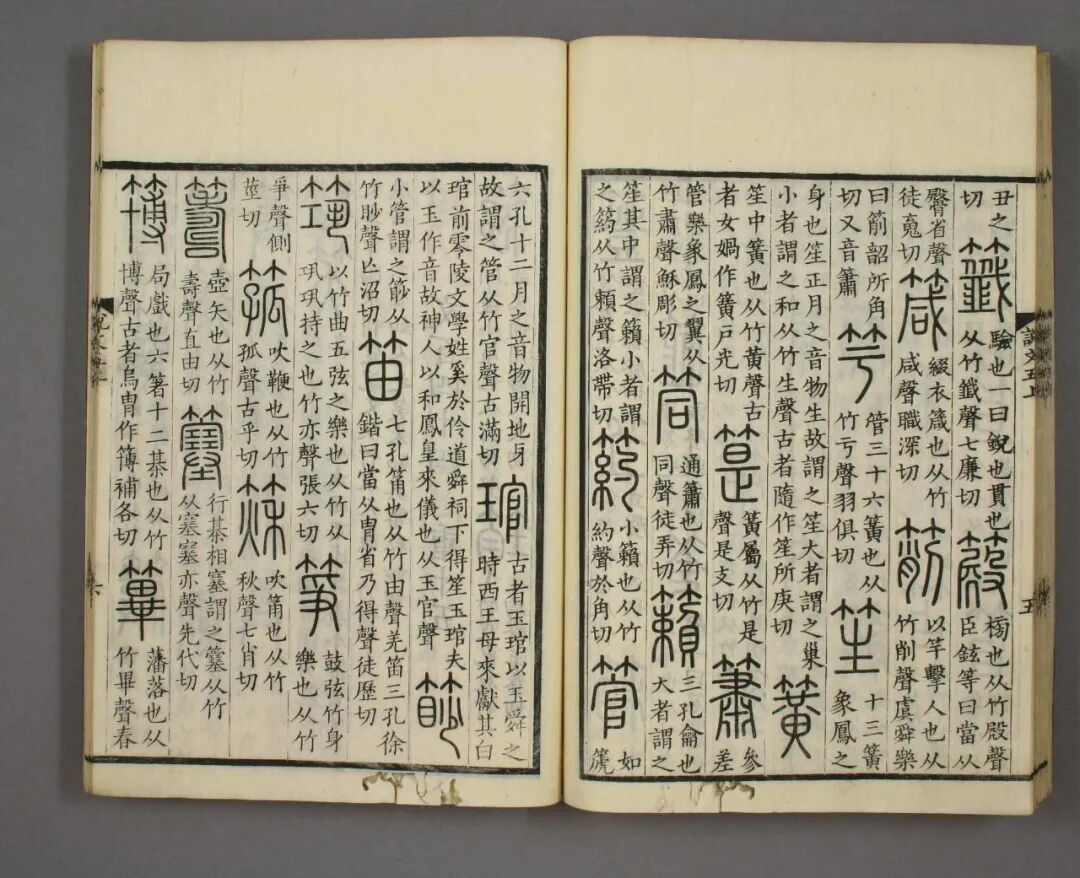 丑之切籤驗也一曰銳也貫也从竹韱聲七廉切𥴫榜也从竹殿聲臣鉉等曰當从
臋省聲徒䰟切箴綴衣箴也从竹咸聲職深切箾以竿擊人也从竹削聲虞舜樂
曰箾韶所角切又音簫竽管三十六簧也从竹亏聲羽俱切笙十三簧象鳳之
身也笙正月之音物生故謂之笙大者謂之巢小者謂之和从竹生聲古者隨作笙所庚切簧
笙中簧也从竹黃聲古者女媧作簧戶光切簧屬从竹是聲是支切簫參差
管樂象鳳之翼从竹肅聲穌彫切筒通簫也从竹同聲徒弄切籟三孔龠也大者謂之
笙其中謂之籟小者謂之箹从竹賴聲洛帶切箹小籟也从竹約聲於角切管如篪
說文五上
五
六孔十二月之音物開地牙故謂之管从竹官聲古滿切琯古者玉琯以玉舜之時西王母來獻其白
琯前零陵文學姓奚於伶道舜祠下得笙玉琯夫以玉作音故神人以和鳳皇來儀也从玉官聲篎
小管謂之篎从竹眇聲亡沼切笛七孔筩也从竹由聲羌笛三孔徐鍇曰當从冑省乃得聲徒歷切
筑以竹曲五弦之樂也从竹从巩巩持之也竹亦聲張六切箏鼓弦竹身樂也从竹
爭聲側莖切箛吹鞭也从竹孤聲古乎切篍吹筩也从竹秋聲七肖切
籌壺矢也从竹壽聲直由切簺行棊相塞謂之簺从竹从塞塞亦聲先代切
簙局戲也六箸十二棊也从竹博聲古者烏冑作簙補各切篳藩落也从竹畢聲春